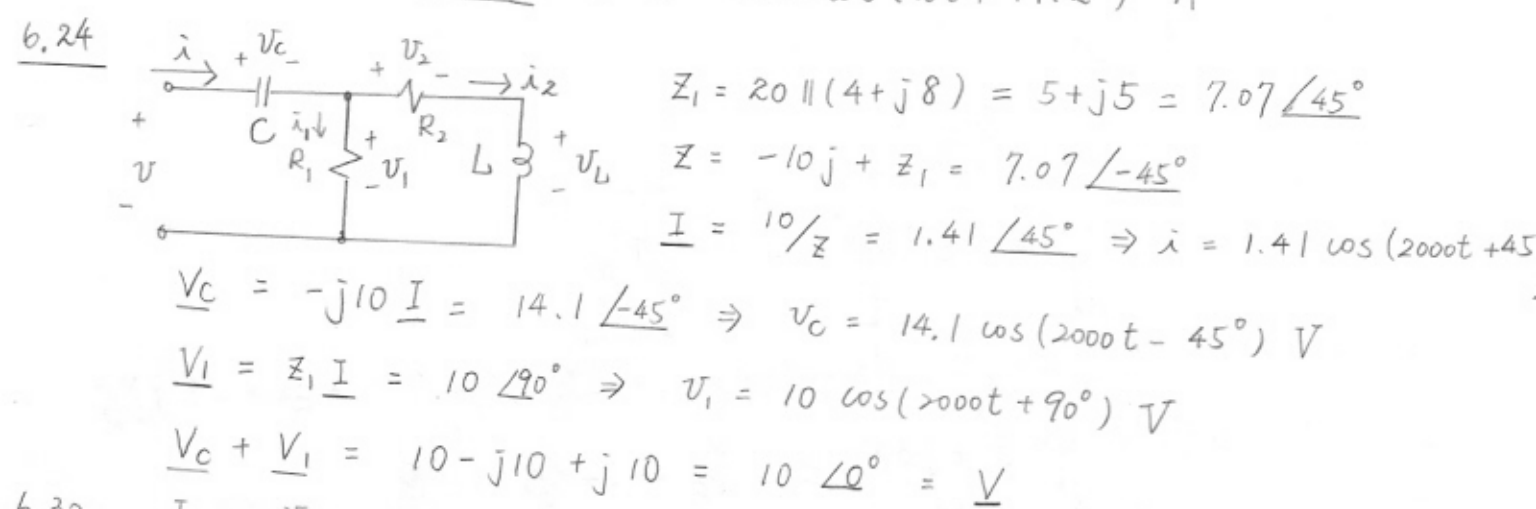 6.24
i + Vc - + V2 - → i2
+ V - C i1↓ R1 + V1 - R2 L + VL -
Z1 = 20 || (4 + j8) = 5 + j5 = 7.07 ∠45°
Z = -10j + Z1 = 7.07 ∠-45°
I = 10/Z = 1.41 ∠45° ⇒ i = 1.41 cos (2000t + 45
Vc = -j10 I = 14.1 ∠-45° ⇒ vc = 14.1 cos (2000t - 45°) V
V1 = Z1 I = 10 ∠90° ⇒ v1 = 10 cos (2000t + 90°) V
Vc + V1 = 10 - j10 + j10 = 10 ∠0° = V